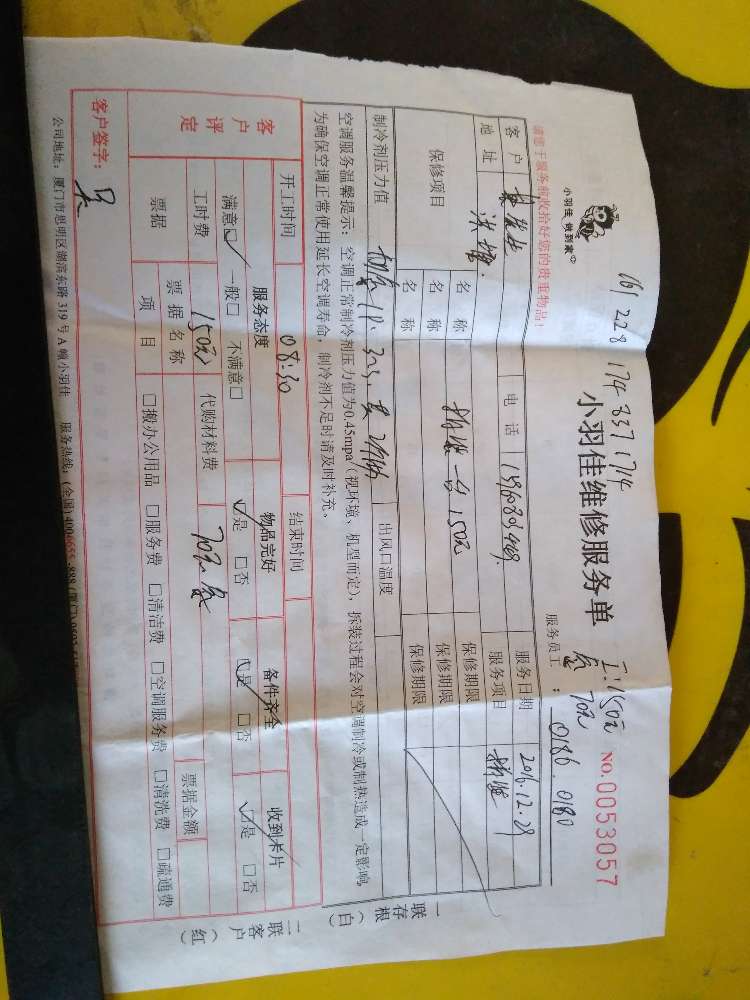 161 228 174 837 1714
小羽佳 做到家
小羽佳维修服务单
NO.0053057
请您于服务前收拾好您的贵重物品!
服务员工: 0186 0180
工:150元
70元
客户 电话 服务日期 2016.12.29
地址 服务项目
保修项目 名称 150元 保修期限
名称 保修期限
名称 保修期限
制冷剂压力值 出风口温度
空调服务温馨提示:空调正常制冷剂压力值为0.45mpa/(视环境、机型而定),拆装过程会对空调制冷或制热造成一定影响,
为确保空调正常使用延长空调寿命,制冷剂不足时请及时补充。
开工时间 08:30 结束时间
客户评定
服务态度 物品完好 备件齐全 收到卡片
满意□ 一般□ 不满意□ □是 □否 □是 □否 □是 □否
工时费 150元 代购材料费
票据 票据名称 票据金额
项目 □搬办公用品 □服务费 □清洁费 □空调服务费 □清洗费 □疏通费
客户签字:
公司地址:厦门市思明区湖滨东路 319 号 A 幢小羽佳 服务热线:(全国)
一联存根(白)
二联客户(红)